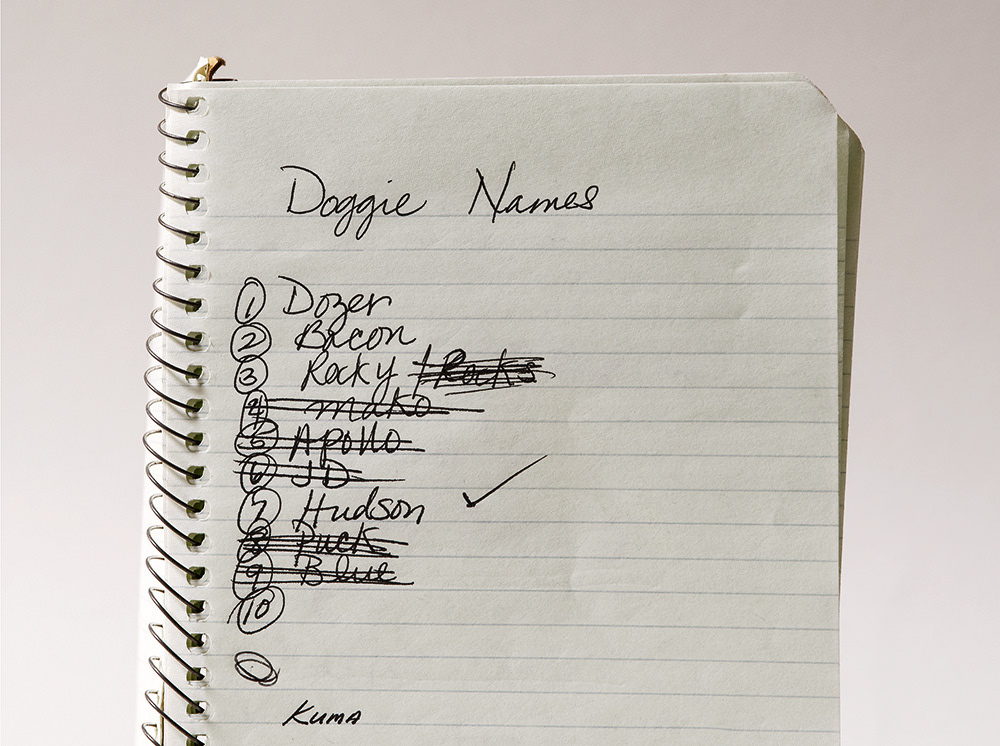 Doggie Names
1 Dozer
2 Bacon
3 Rocky / Rocks
4 mako
5 Apollo
6 JD
7 Hudson ✓
8 Puck
9 Blue
10
Kuma